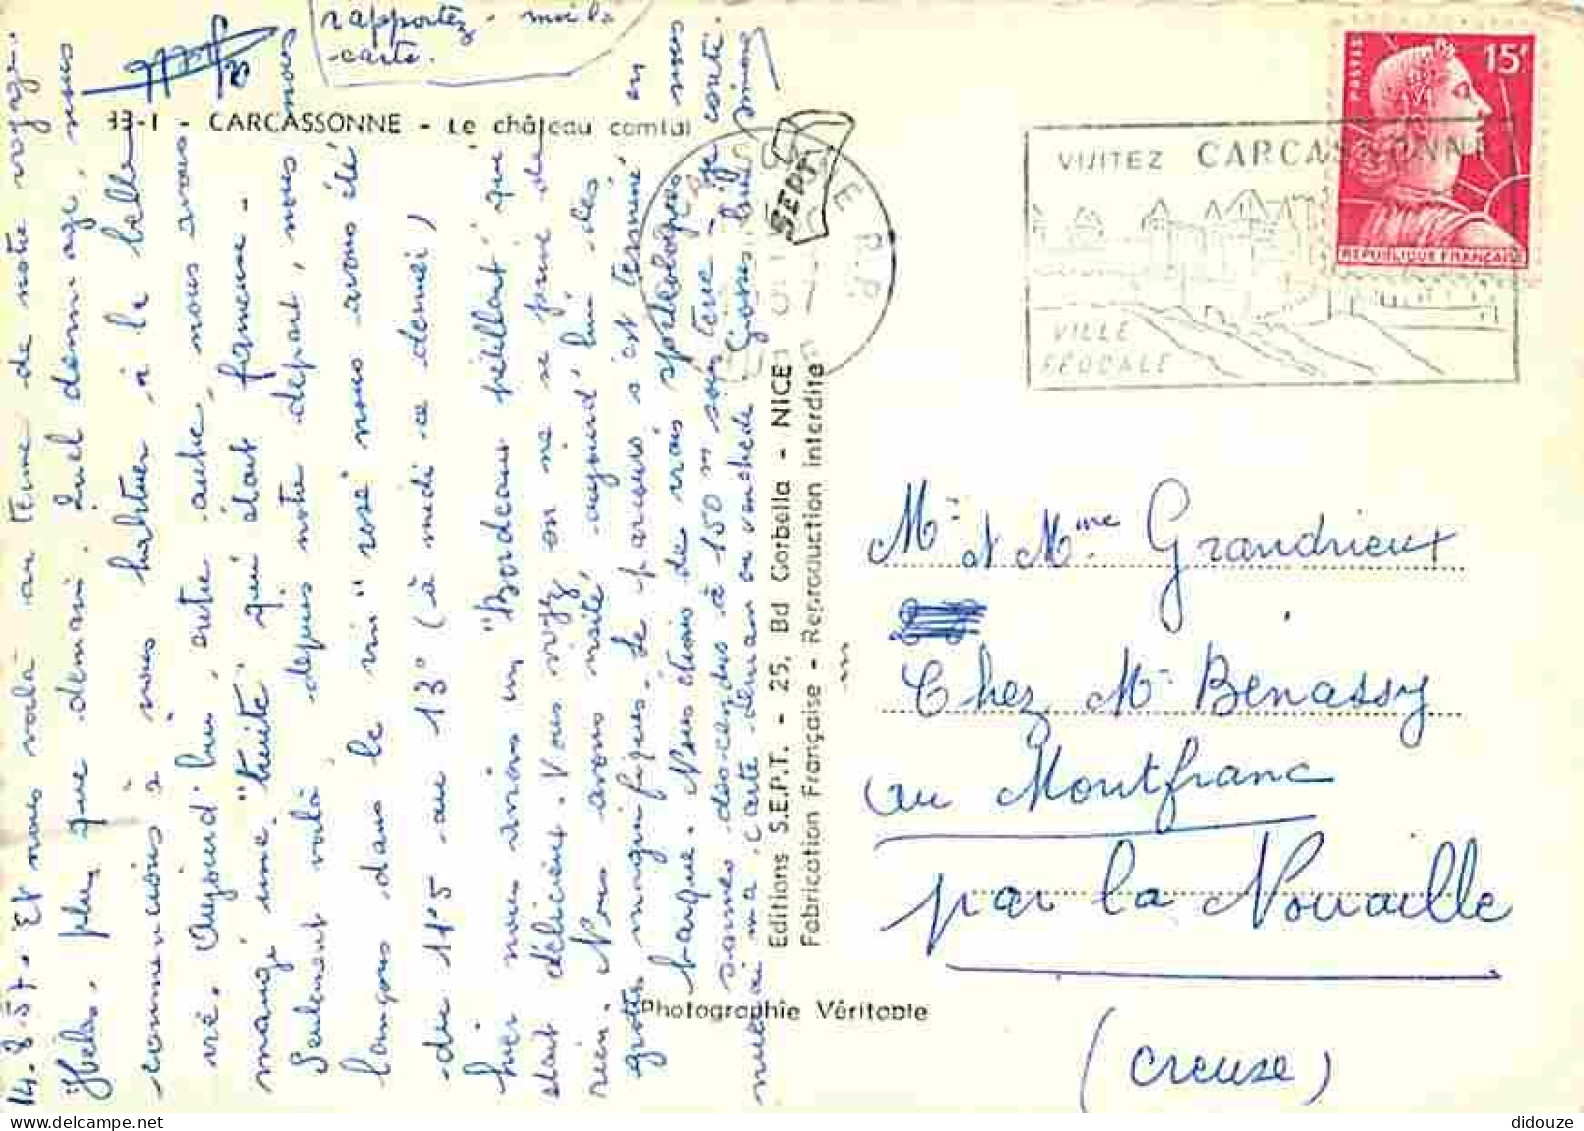 rapportez-moi la
carte.
33-1 - CARCASSONNE - Le château comtal
14.8.57. Et nous voilà au terme de notre voyage.
Hélas, plus que demain. Quel dommage, nous
commencions à nous habituer à la belle
vie. Aujourd'hui, entre autre, nous avons
mangé une "truite" qui était fameuse -
Seulement voilà, depuis notre départ, nous nous
lançons dans le vin "rosé" nous avons été
du 11°5 au 13° (à midi ce dernier)
hier nous avions un "Bordeaux pétillant" qui
était délicieux. Vous voyez on ne se prive de
rien. Nous avons visité, aujourd'hui des
grottes magnifiques. Le parcours s'est terminé en
barque. Nous étions de vrais spéléologues nous
sommes descendus à 150 m sous terre - je
ma carte demain ou vendredi. Grosses bises Simone
Editions S.E.P.T. - 25, Bd Gorbella - NICE
Fabrication Française - Reproduction interdite
Photographie Véritable
SEPT
R.P.
VISITEZ CARCASSONNE
VILLE
FÉODALE
POSTES
15f
REPUBLIQUE FRANÇAISE
Mr et Mme Grandrieux
Chez Mr Benassy
au Montfranc
par la Nouaille
(Creuse)
didouze